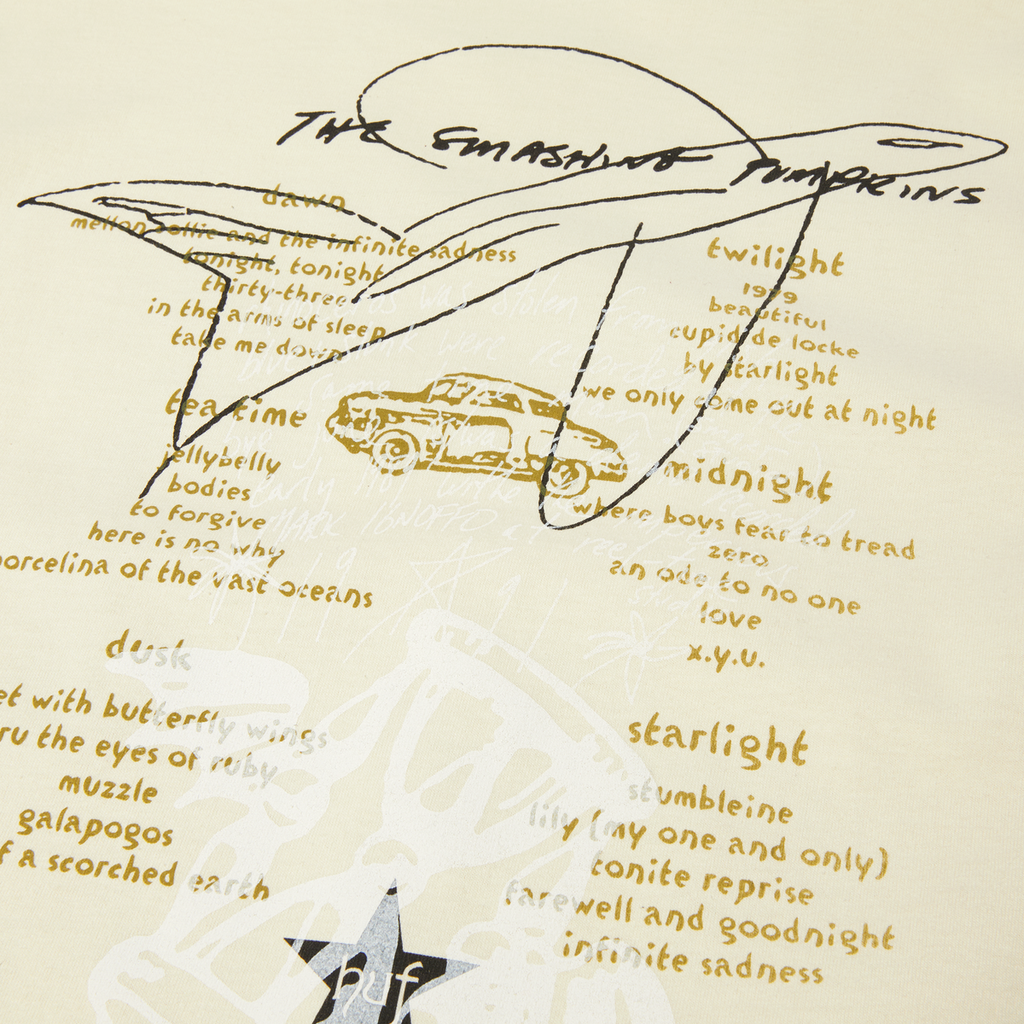 THE SMASHING PUMPKINS
dawn
mellon collie and the infinite sadness
tonight, tonight
thirty-three
in the arms of sleep
take me down
tea time
jellybelly
bodies
to forgive
here is no why
porcelina of the vast oceans
dusk
et with butterfly wings
ru the eyes of ruby
muzzle
galapogos
f a scorched earth
twilight
1979
beautiful
cupid de locke
by starlight
we only come out at night
midnight
where boys fear to tread
zero
an ode to no one
love
x.y.u.
starlight
stumbleine
lily (my one and only)
tonite reprise
farewell and goodnight
infinite sadness
was stolen from
were recorded
early
MARK
reel
huf